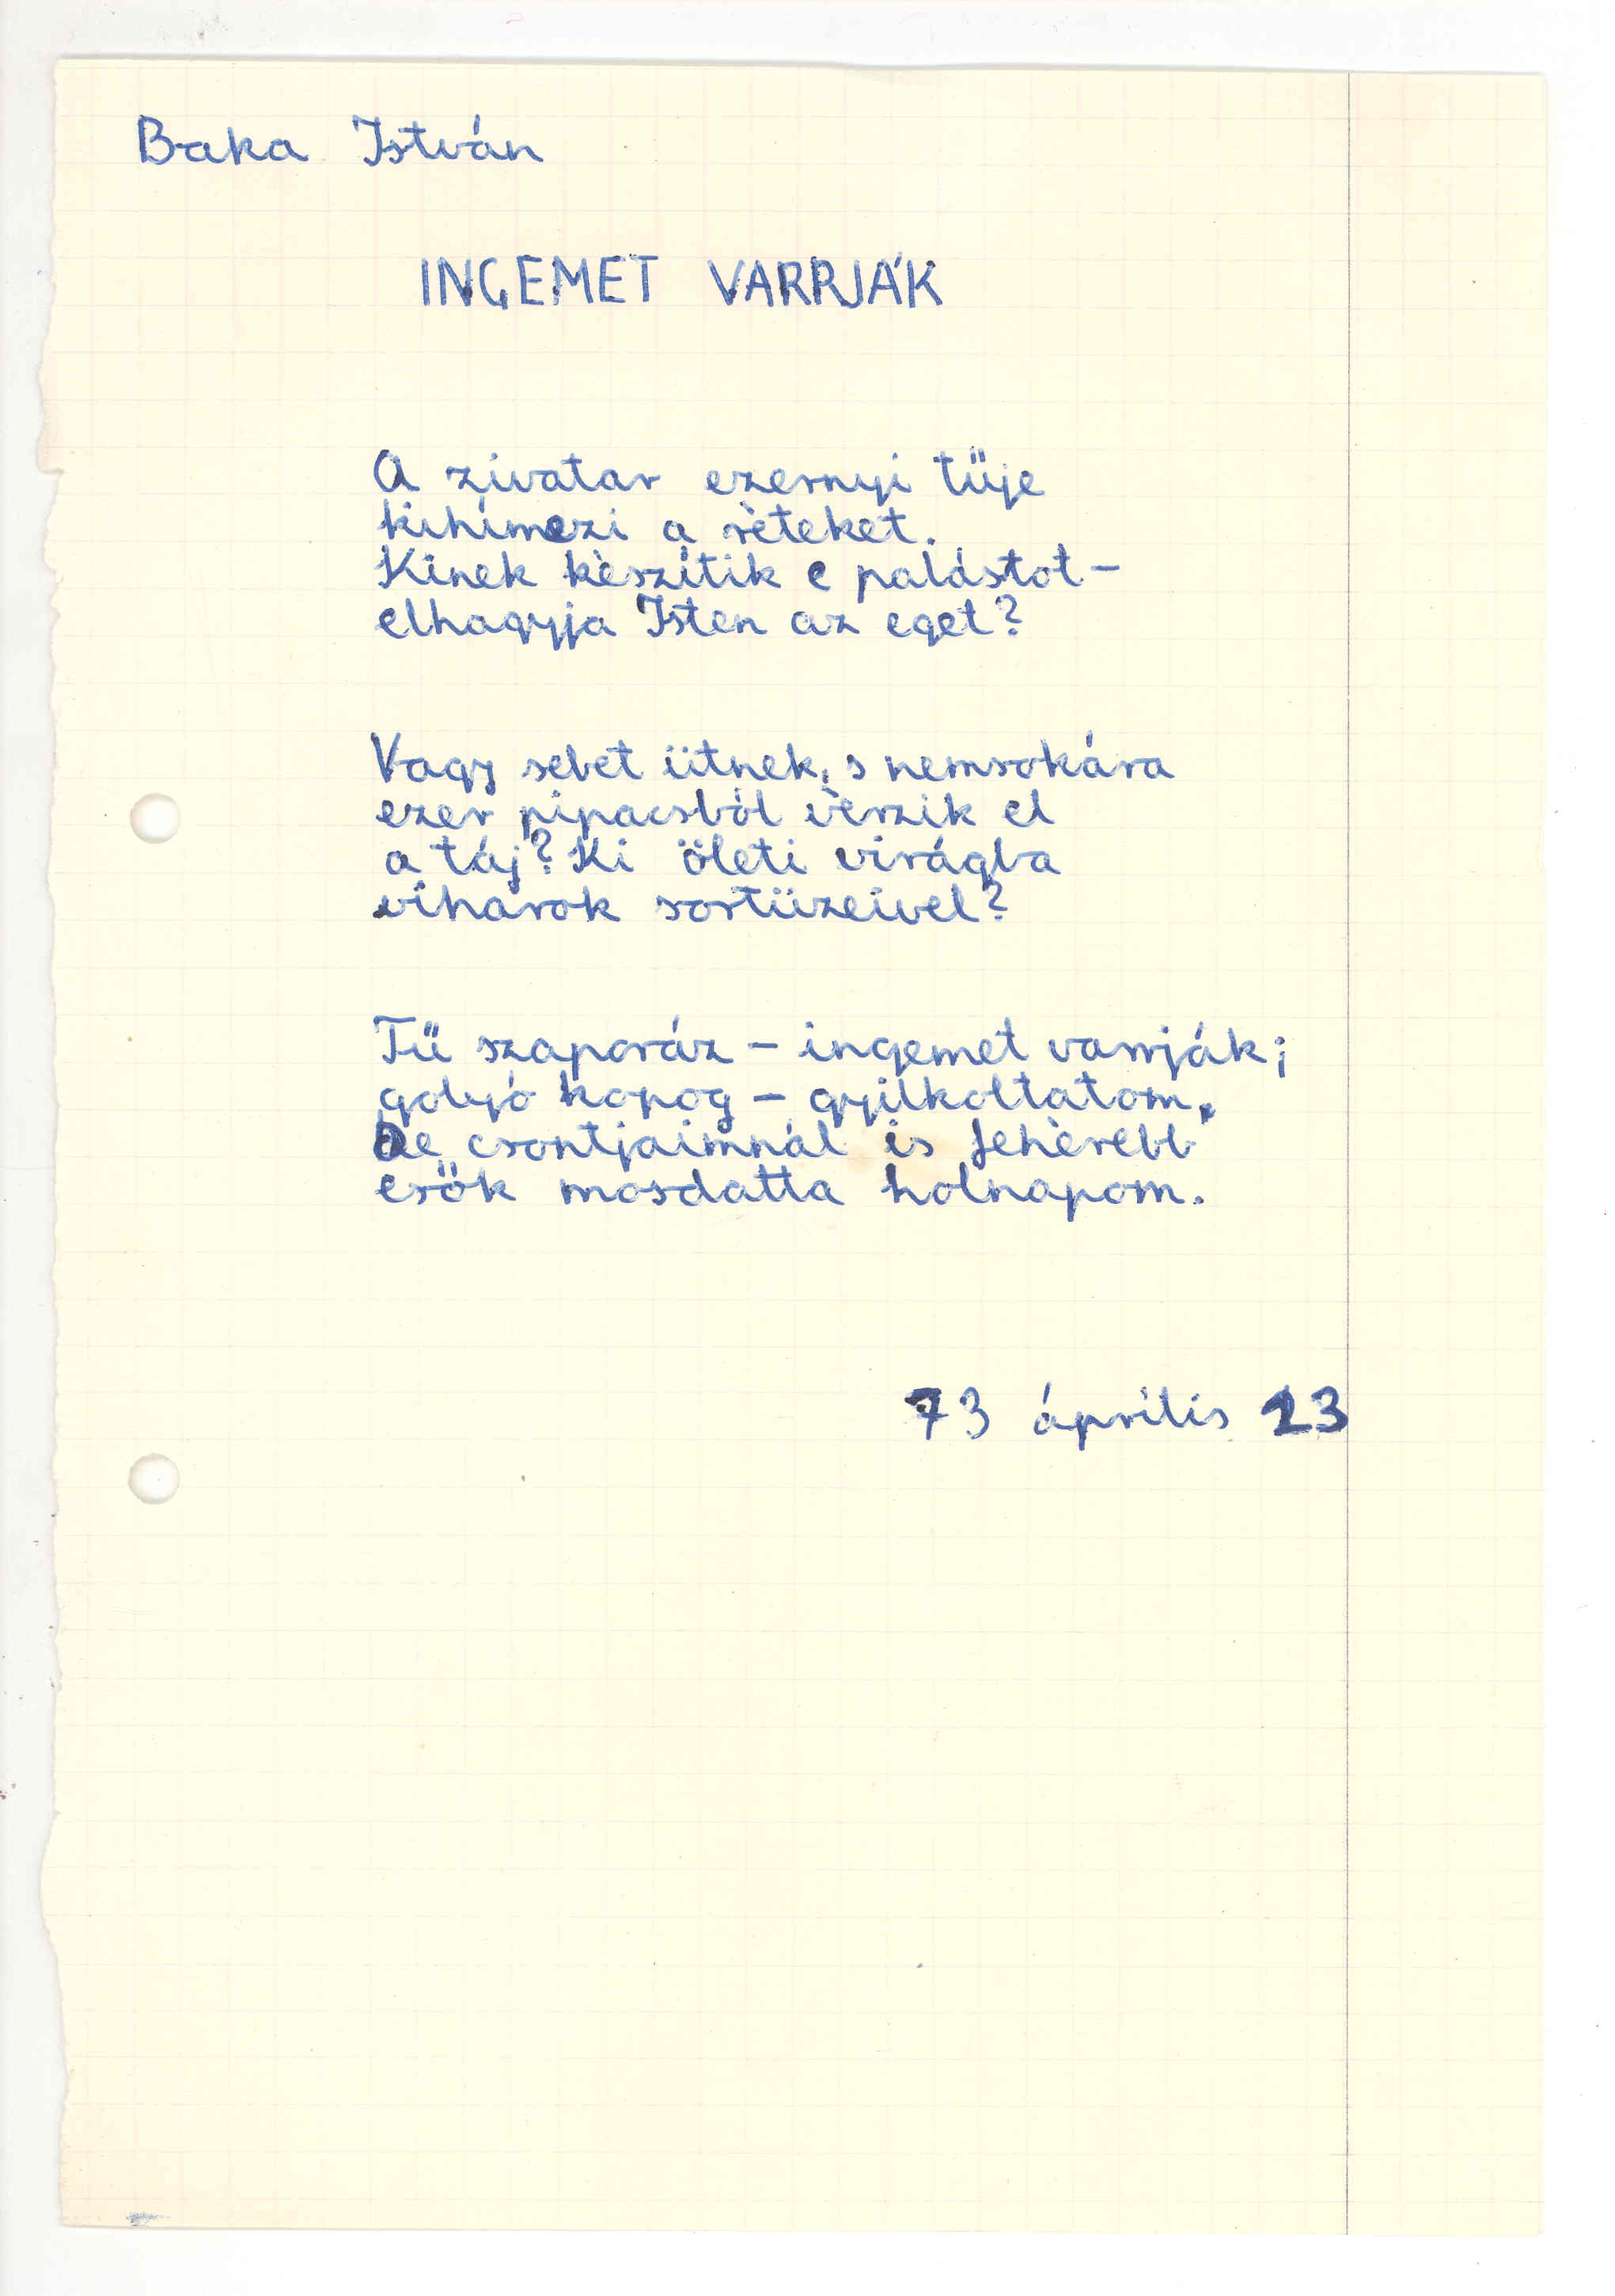 Baka István
INGEMET VARRJÁK
A zivatar ezernyi tűje
kihímezi a réteket.
Kinek készítik e palástot –
elhagyja Isten az eget?
Vagy sebet ütnek, s nemsokára
ezer pipacsból vérzik el
a táj? Ki öleti virágba
viharok sortüzeivel?
Tű szaporáz – ingemet varrják;
golyó kopog – gyilkoltatom.
De csontjaimnál is fehérebb
esők mosdatta holnapom.
73 április 23